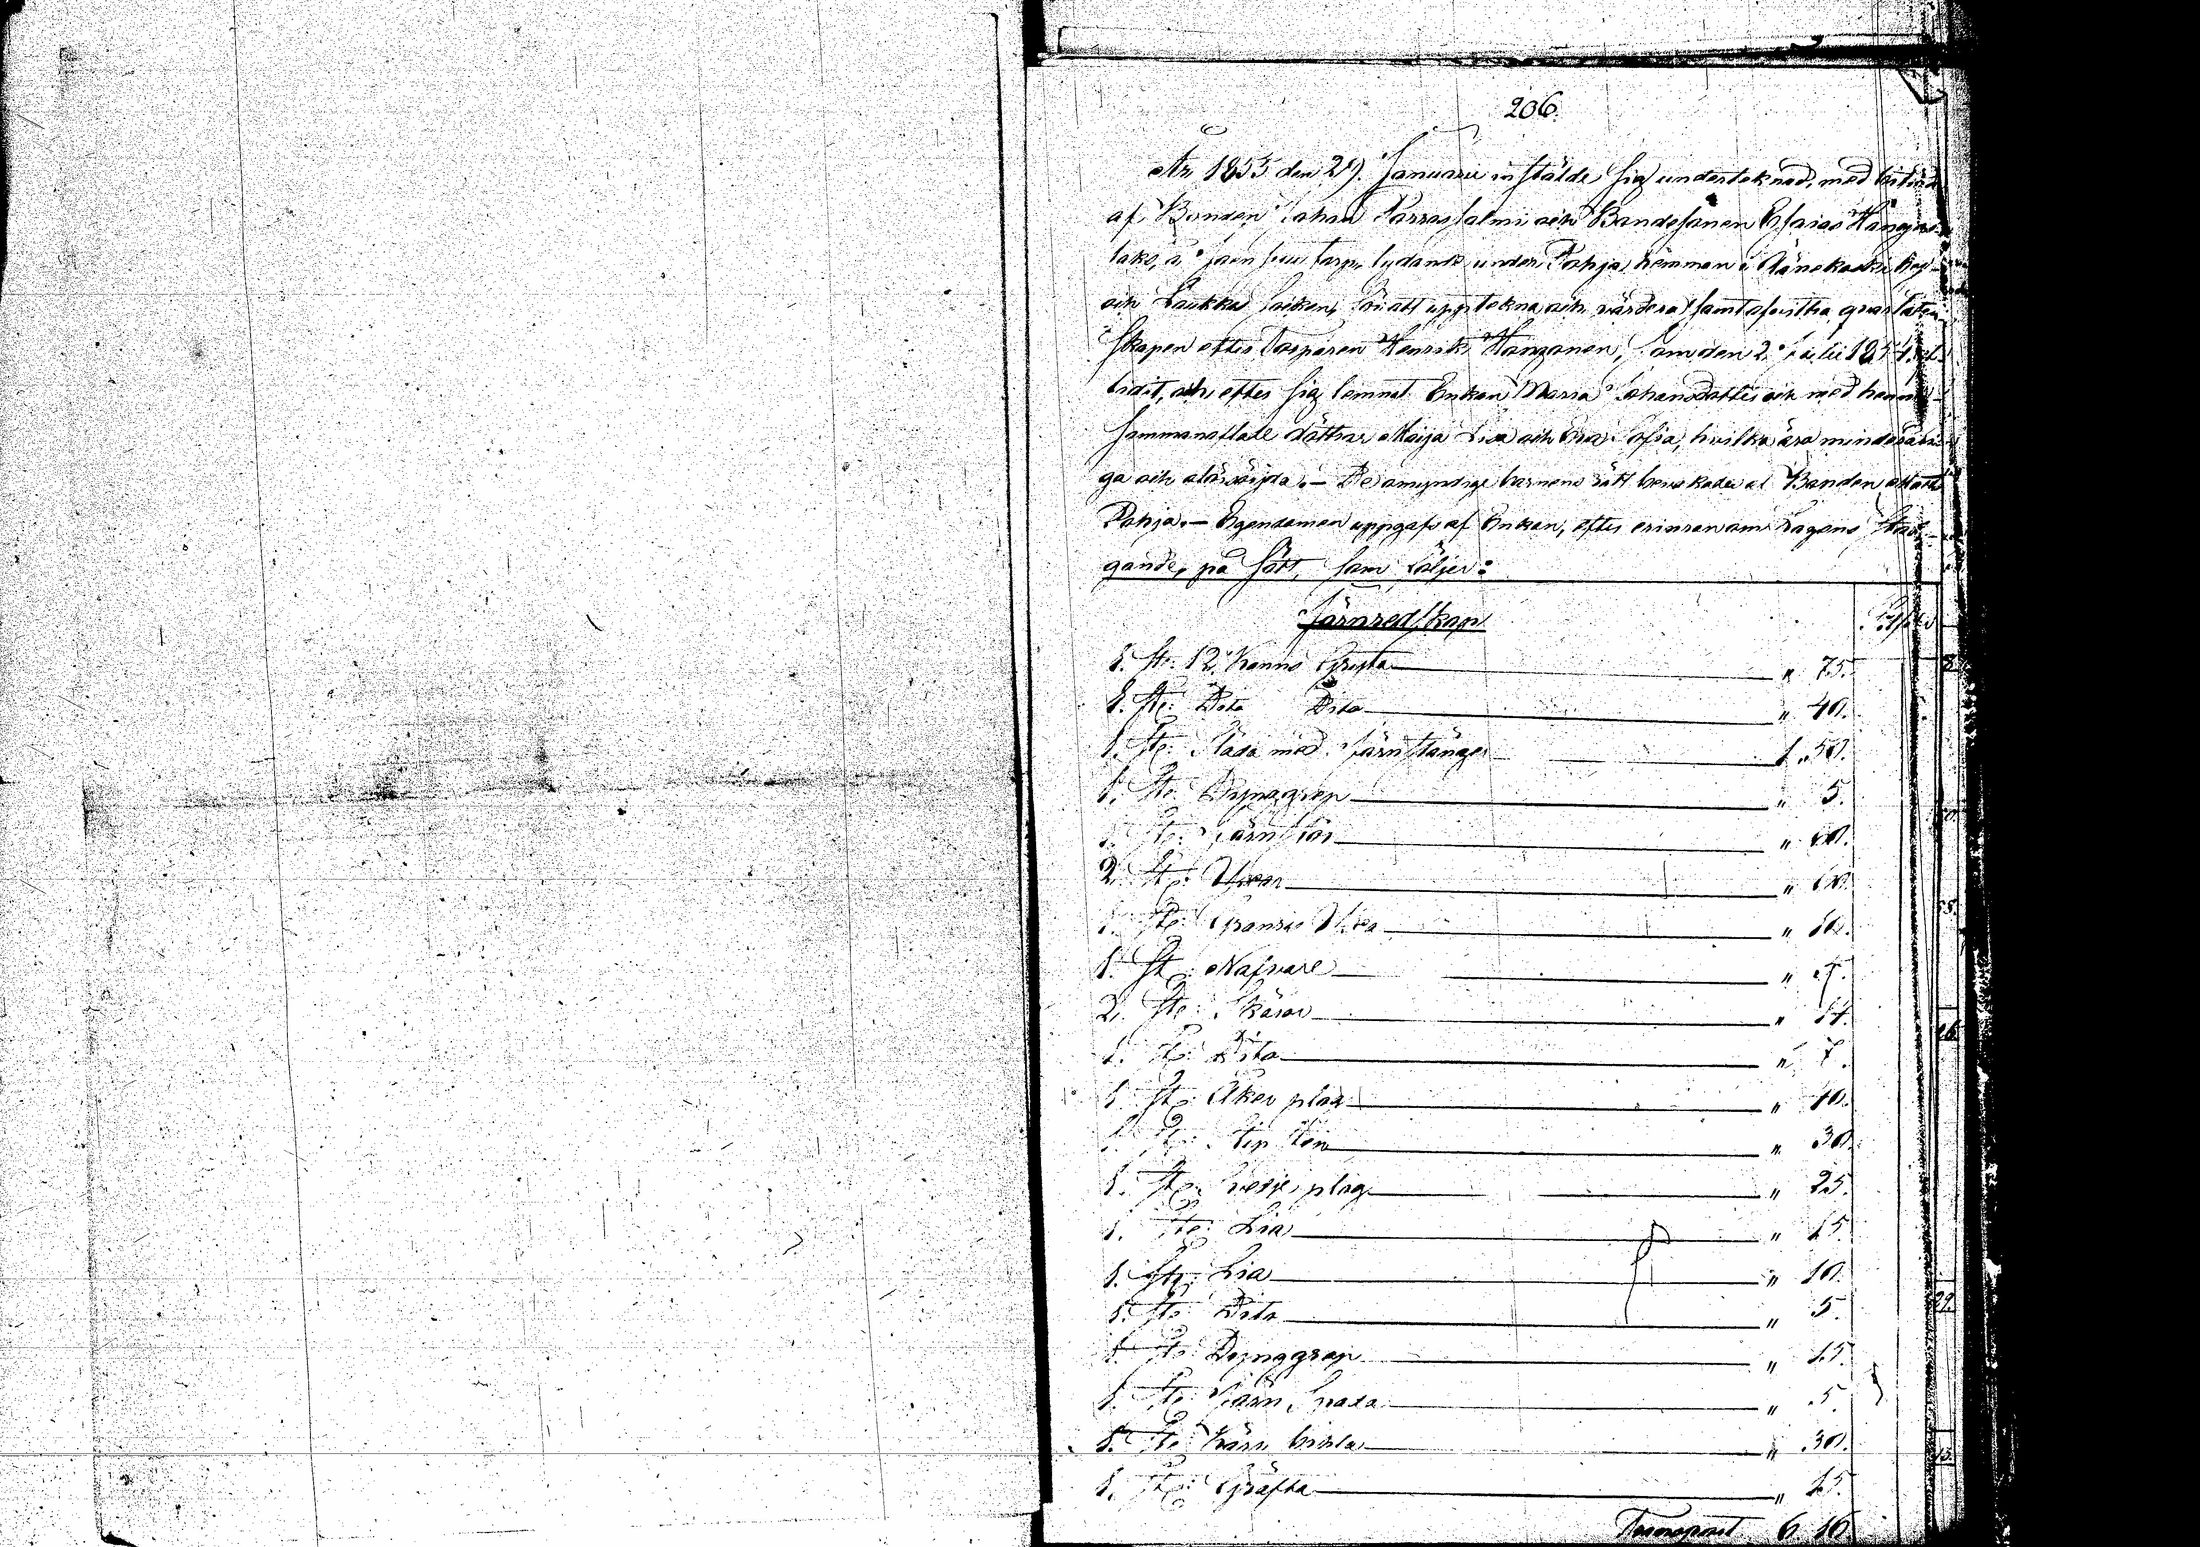 206.
År 1855 den 29. Januarii instälde sig undertecknad, med biträde
af Bonden Johan Parrassalmi och Bondesonen Esaias Hänni-
laks, å torp, lydande under Pohja hemman i Äänekoski by
och Laukka Socken, för att uppteckna och värdera samt afvittra qvarlåten-
skapen efter Torparen Henrik Manganen, som den 2 Julii 1854 af-
lidit, och efter sig lemnat Enkan Maria Johansdotter och med henne
sammanaflade döttrar Maija Lisa och Eva Sofia, hvilka äro minderåri-
ga och oförsörjda. — De omyndige barnens rätt bevakades af Bonden Matts
Pohja. — Egendomen uppgafs af Enkan, efter erinran om Lagens stad-
gande, på sätt, som följer:
Järnredskap
1. st: 12. Kanns Gryta " 75.
1. st: Dito Dito " 40.
1. st: Släda med Järnstänger 1 " 50.
1. st: Dynggrep " 5.
1. st: Järnstör " 60.
2. st: Yxor " 60.
1. st: Yxa " 10.
1. st: Nafvare " 7.
2. st: Skäror " 14.
1. st: Dito " 7.
1. st: Åker plog " 40.
1. st: Slip sten " 30.
1. st: plog " 25.
1. st: Lia " 15.
1. st: Lia " 10.
1. st: Dito " 5.
1. st: Dynggrep " 15.
1. st: Järn Spada " 5.
1. st: Kärr " 30.
1. st: Gräfta " 15.
Transport 6. 16